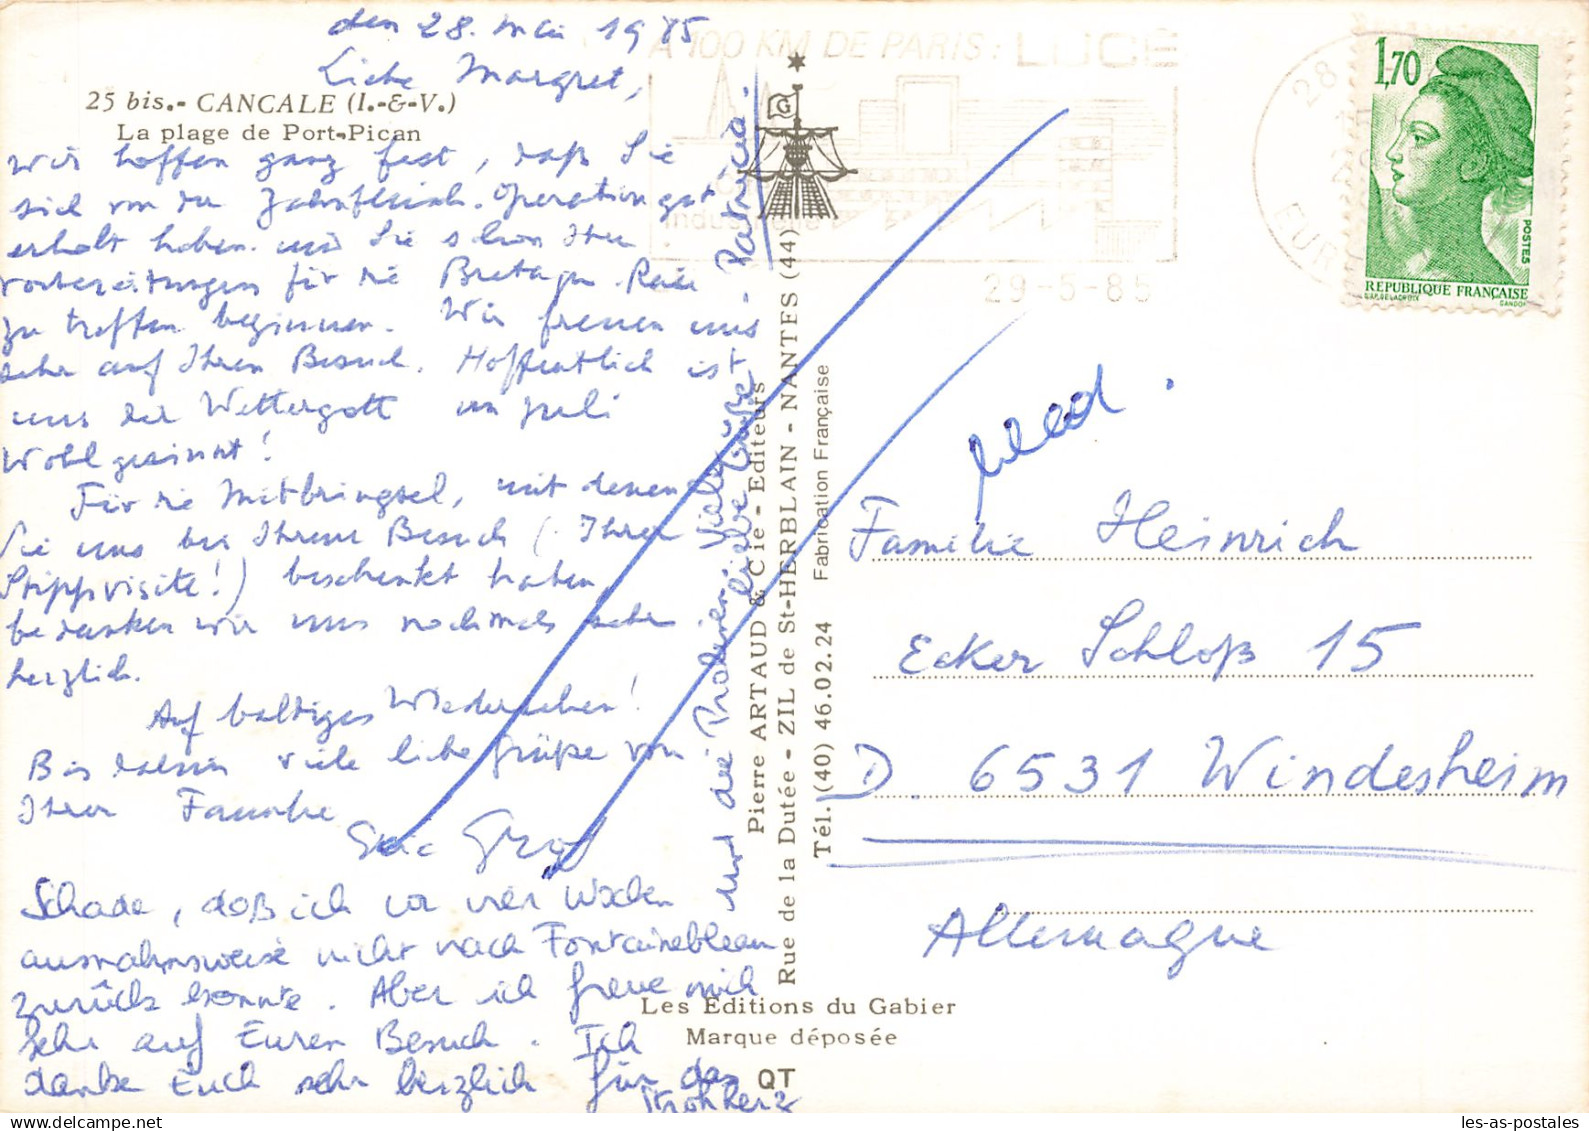 den 28. Mai 1985
Liebe Margret,
25 bis.- CANCALE (I.-&-V.)
La plage de Port-Pican
Wir hoffen ganz fest, daß Sie
sich von der Zahnfleisch-Operation gut
erholt haben und Sie schon Ihre
Vorbereitungen für die Bretagne-Reise
zu treffen beginnen. Wir freuen uns
sehr auf Ihren Besuch. Hoffentlich ist
uns der Wettergott im Juli
Wohlgesinnt!
Für die Mitbringsel, mit denen
Sie uns bei Ihrem Besuch (Ihrer
Stippvisite!) beschenkt haben,
bedanken wir uns nochmals sehr
herzlich.
Auf baldiges Wiedersehen!
Bis dahin viele liebe Grüße von
Ihrer Familie
Graf
Schade, daß ich vor vier Wochen
ausnahmsweise nicht nach Fontainebleau
zurück konnte. Aber ich freue mich
sehr auf Euren Besuch. Ich
danke Euch sehr herzlich für das
Strohherz
und die Pralinen. Viele
liebe Grüße. Patricia.
A 100 KM DE PARIS: LUCÉ
29-5-85
28
EUR
G
1,70
POSTES
REPUBLIQUE FRANÇAISE
D'AP. DELACROIX
GANDON
Pierre ARTAUD & Cie - Editeurs
Rue de la Dutée - ZIL de St-HERBLAIN - NANTES (44)
Tél. (40) 46.02.24 Fabrication Française
Familie Heinrich
Ecker Schloß 15
D. 6531 Windesheim
Allemagne
Les Editions du Gabier
Marque déposée
QT
les-as-postales